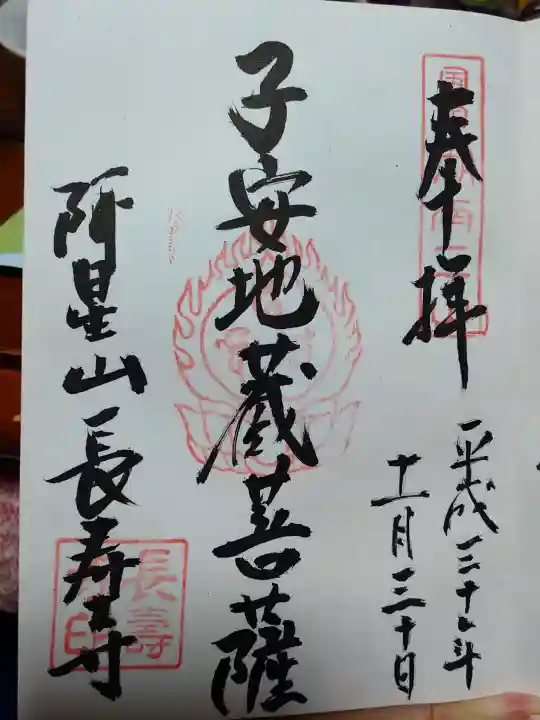 奉拝
平成三十年
十一月三十日
子安地蔵菩薩
阿星山長寿寺
長壽